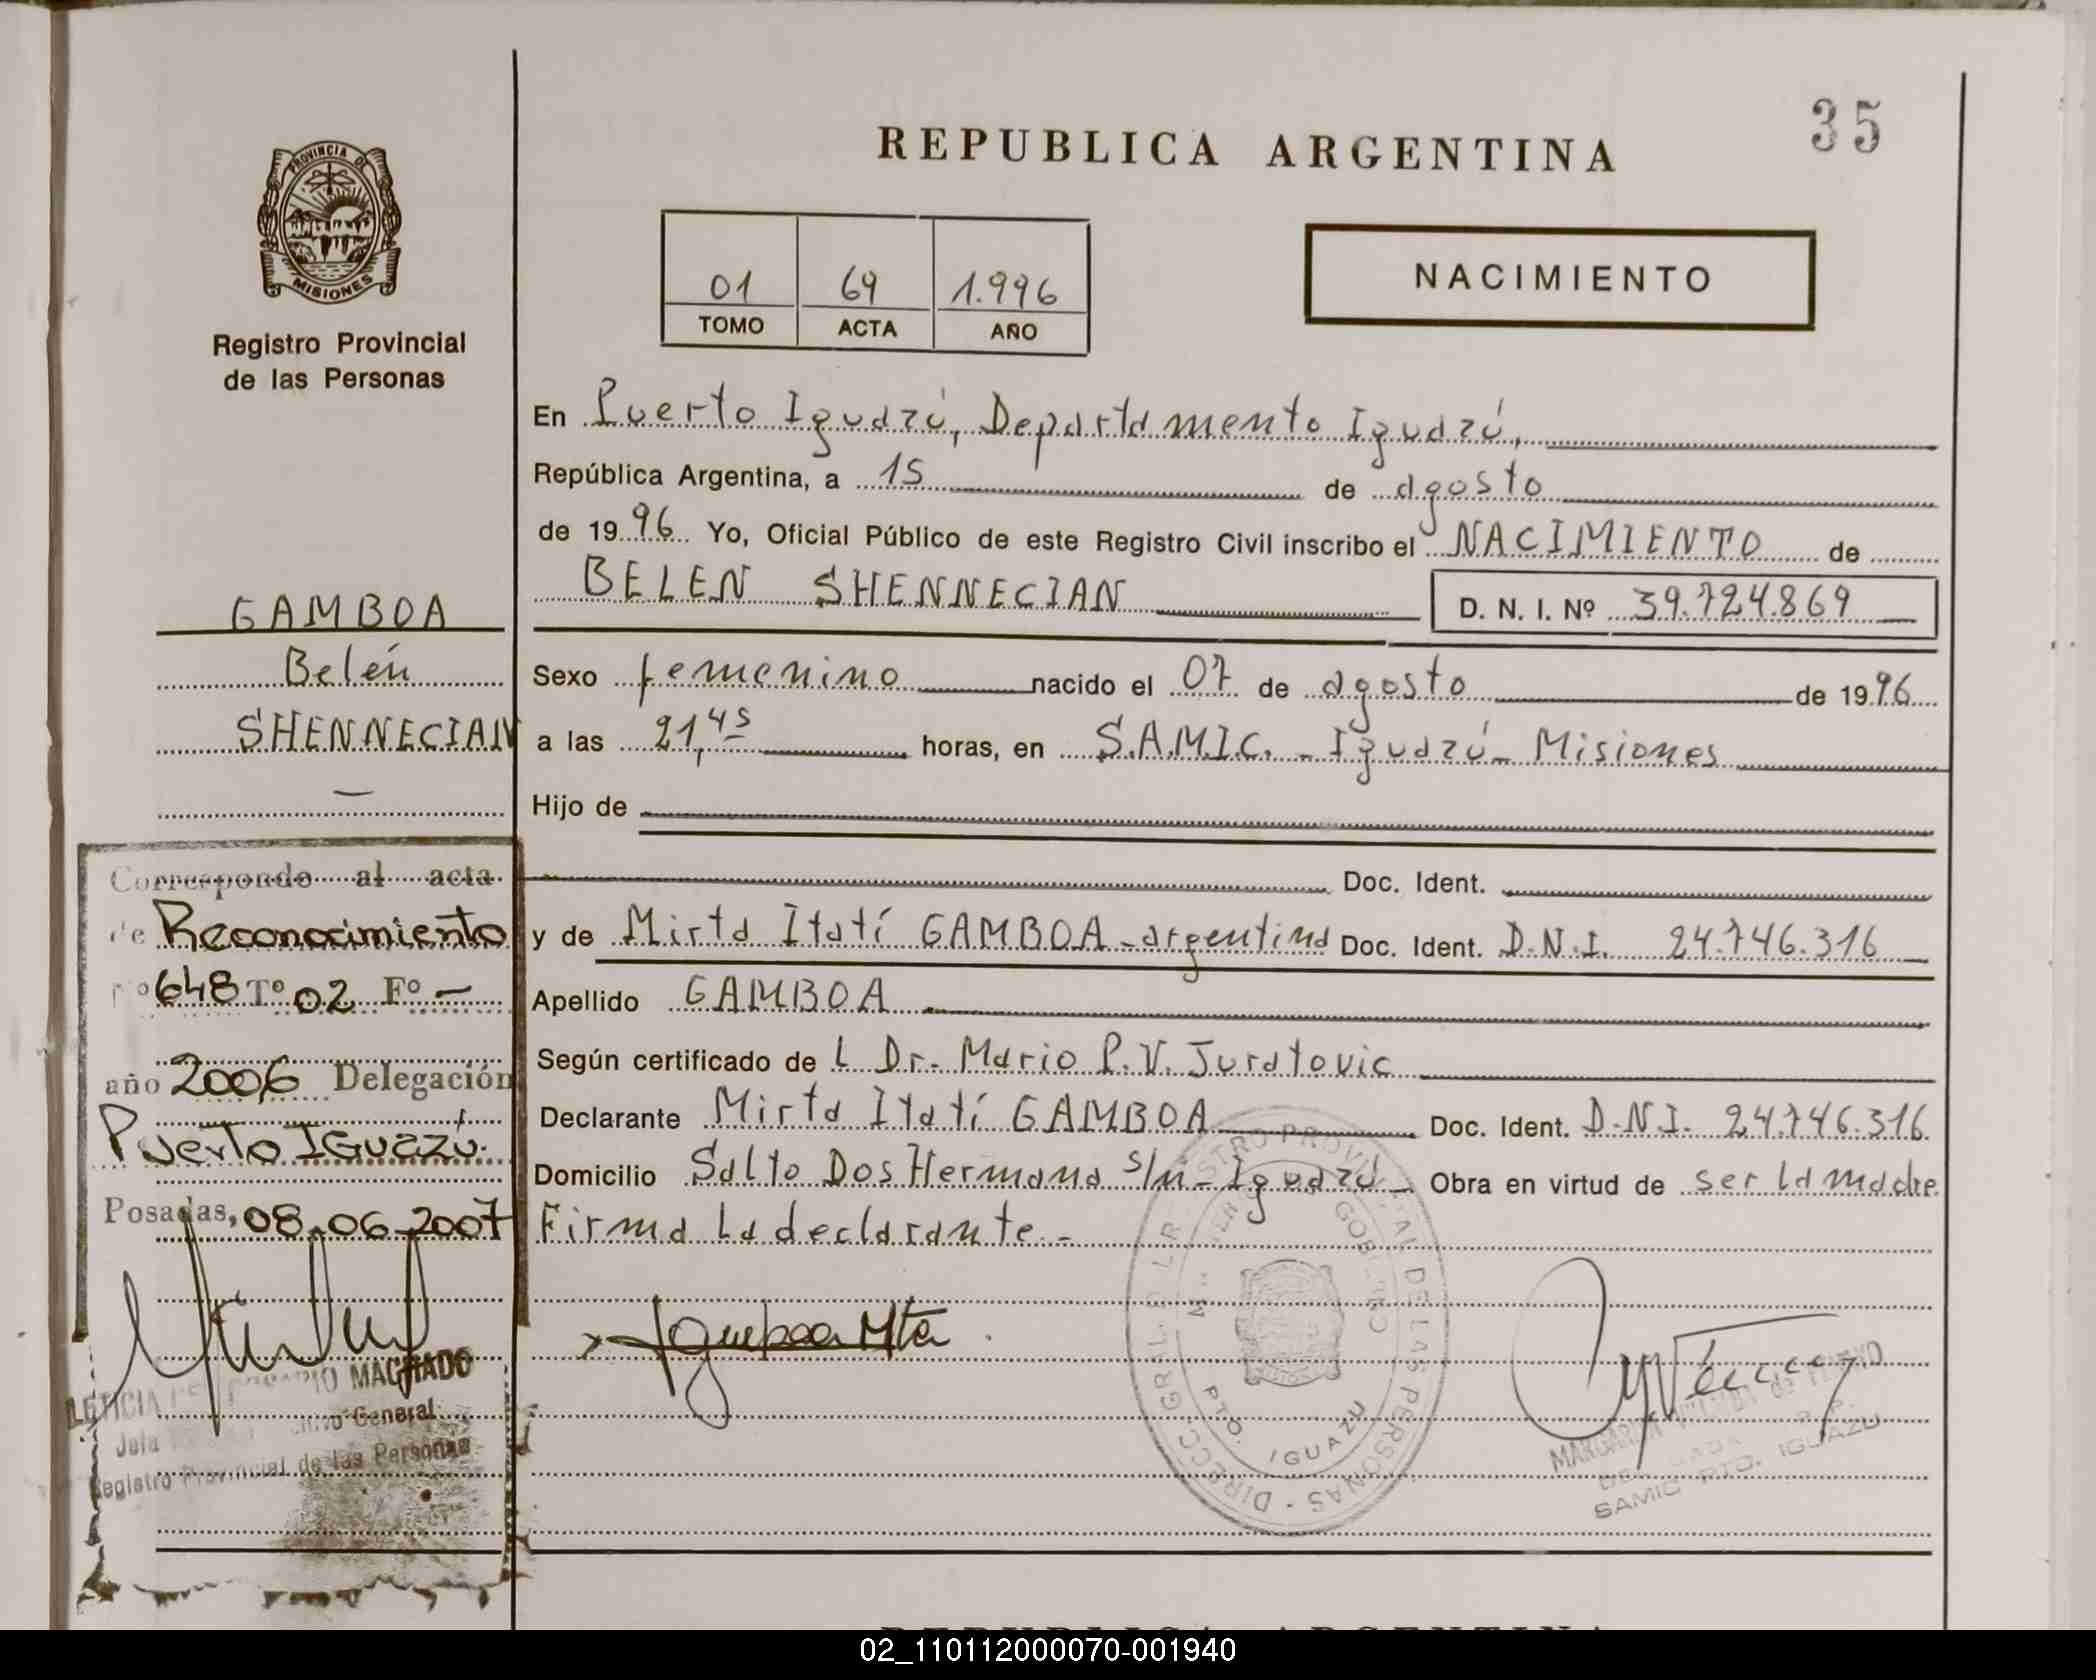 35
REPUBLICA ARGENTINA
PROVINCIA DE
MISIONES
Registro Provincial
de las Personas
01 69 1.996
TOMO ACTA AÑO
NACIMIENTO
En Puerto Iguazú, Departamento Iguazú,
República Argentina, a 15 de agosto
de 1996 Yo, Oficial Público de este Registro Civil inscribo el NACIMIENTO de
BELEN SHENNECIAN D. N. I. Nº 39.724.869
GAMBOA
Belén
SHENNECIAN
—
Sexo femenino nacido el 07 de agosto de 1996
a las 21,45 horas, en S.A.M.I.C. - Iguazú - Misiones
Hijo de
Doc. Ident.
y de Mirta Itatí GAMBOA - argentina Doc. Ident. D.N.I. 24.746.316
Apellido GAMBOA
Según certificado de l Dr. Mario P.V. Juratovic
Declarante Mirta Itatí GAMBOA Doc. Ident. D.N.I. 24.746.316
Domicilio Salto Dos Hermana s/n - Iguazú - Obra en virtud de ser la madre
Firma la declarante.-
Corresponde al acta
de Reconocimiento
Nº 648 Tº 02 Fº —
año 2006 Delegación
Puerto IGuazú.
Posadas, 08-06-2007
LETICIA MACHADO
Jefa General
Registro Provincial de las Personas
Gamboa Mta
DIRECC. GRAL. DEL REGISTRO PROVINCIAL DE LAS PERSONAS
GOBIERNO
PTO. IGUAZU
MARGARITA
SAMIC PTO. IGUAZU
REPUBLICA ARGENTINA
02_110112000070-001940